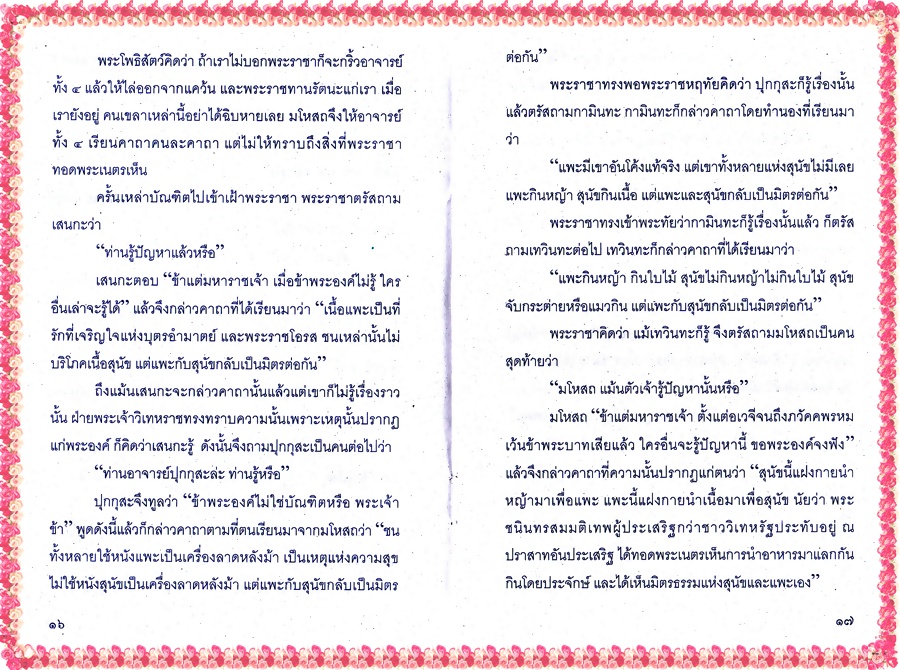 พระโพธิสัตว์คิดว่า ถ้าเราไม่บอกพระราชาก็จะกริ้วอาจารย์
ทั้ง ๔ แล้วให้ไล่ออกจากแคว้น และพระราชทานรัตนะแก่เรา เมื่อ
เรายังอยู่ คนเขลาเหล่านี้อย่าได้ฉิบหายเลย มโหสถจึงให้อาจารย์
ทั้ง ๔ เรียนคาถาคนละคาถา แต่ไม่ให้ทราบถึงสิ่งที่พระราชา
ทอดพระเนตรเห็น
ครั้นเหล่าบัณฑิตไปเข้าเฝ้าพระราชา พระราชาตรัสถาม
เสนกะว่า
“ท่านรู้ปัญหาแล้วหรือ”
เสนกะตอบ “ข้าแต่มหาราชเจ้า เมื่อข้าพระองค์ไม่รู้ ใคร
อื่นเล่าจะรู้ได้” แล้วจึงกล่าวคาถาที่ได้เรียนมาว่า “เนื้อแพะเป็นที่
รักที่เจริญใจแห่งบุตรอำมาตย์ และพระราชโอรส ชนเหล่านั้นไม่
บริโภคเนื้อสุนัข แต่แพะกับสุนัขกลับเป็นมิตรต่อกัน”
ถึงแม้นเสนกะจะกล่าวคาถานั้นแล้วแต่เขาก็ไม่รู้เรื่องราว
นั้น ฝ่ายพระเจ้าวิเทหราชทรงทราบความนั้นเพราะเหตุนั้นปรากฏ
แก่พระองค์ ก็คิดว่าเสนกะรู้ ดังนั้นจึงถามปุกกุสะเป็นคนต่อไปว่า
“ท่านอาจารย์ปุกกุสะล่ะ ท่านรู้หรือ”
ปุกกุสะจึงทูลว่า “ข้าพระองค์ไม่ใช่บัณฑิตหรือ พระเจ้า
ข้า” พูดดังนี้แล้วก็กล่าวคาถาตามที่ตนเรียนมาจากมโหสถว่า “ชน
ทั้งหลายใช้หนังแพะเป็นเครื่องลาดหลังม้า เป็นเหตุแห่งความสุข
ไม่ใช้หนังสุนัขเป็นเครื่องลาดหลังม้า แต่แพะกับสุนัขกลับเป็นมิตร
๑๖
ต่อกัน”
พระราชาทรงพอพระราชหฤทัยคิดว่า ปุกกุสะก็รู้เรื่องนั้น
แล้วตรัสถามกามินทะ กามินทะก็กล่าวคาถาโดยทำนองที่เรียนมา
ว่า
“แพะมีเขาอันโค้งแท้จริง แต่เขาทั้งหลายแห่งสุนัขไม่มีเลย
แพะกินหญ้า สุนัขกินเนื้อ แต่แพะและสุนัขกลับเป็นมิตรต่อกัน”
พระราชาทรงเข้าพระทัยว่ากามินทะก็รู้เรื่องนั้นแล้ว ก็ตรัส
ถามเทวินทะต่อไป เทวินทะก็กล่าวคาถาที่ได้เรียนมาว่า
“แพะกินหญ้า กินใบไม้ สุนัขไม่กินหญ้าไม่กินใบไม้ สุนัข
จับกระต่ายหรือแมวกิน แต่แพะกับสุนัขกลับเป็นมิตรต่อกัน”
พระราชาคิดว่า แม้เทวินทะก็รู้ จึงตรัสถามมโหสถเป็นคน
สุดท้ายว่า
“มโหสถ แม้นตัวเจ้ารู้ปัญหานั้นหรือ”
มโหสถ “ข้าแต่มหาราชเจ้า ตั้งแต่อเวจีจนถึงภวัคคพรหม
เว้นข้าพระบาทเสียแล้ว ใครอื่นจะรู้ปัญหานี้ ขอพระองค์จงฟัง”
แล้วจึงกล่าวคาถาที่ความนั้นปรากฏแก่ตนว่า “สุนัขนี้แฝงกายนำ
หญ้ามาเพื่อแพะ แพะนี้แฝงกายนำเนื้อมาเพื่อสุนัข นัยว่า พระ
ชนินทรสมมติเทพผู้ประเสริฐกว่าชาววิเทหรัฐประทับอยู่ ณ
ปราสาทอันประเสริฐ ได้ทอดพระเนตรเห็นการนำอาหารมาแลกกัน
กินโดยประจักษ์ และได้เห็นมิตรธรรมแห่งสุนัขและแพะเอง”
๑๗